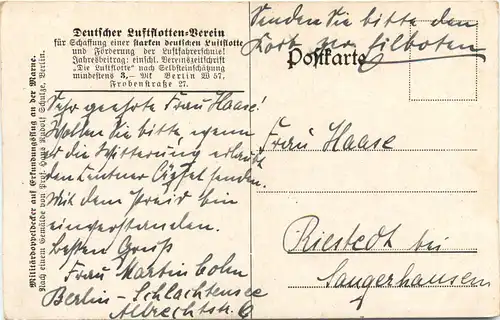 Deutscher Luftflotten-Verein
für Schaffung einer starken deutschen Luftflotte
und Förderung der Luftfahrerschule!
Jahresbeitrag: einschl. Vereinszeitschrift
„Die Luftflotte" nach Selbsteinschätzung
mindestens 3,— Mk Berlin W 57,
Frobenstraße 27.
Senden Sie bitte den
Korb per Eilboten
Postkarte
Sehr geehrte Frau Haase!
Wollen Sie bitte, wenn
es die Witterung erlaubt
den Zentner Äpfel senden.
Mit dem Preis bin
einverstanden.
Besten Gruß
Frau Martin Cohn
Berlin - Schlachtensee
Albrechtstr. 6
Frau Haase
Riestedt bei
Sangerhausen
Militärdoppeldecker auf Erkundungsflug an der Marne.
Nach einem Gemälde von Prof. Hans Rudolf Schulze, Berlin.